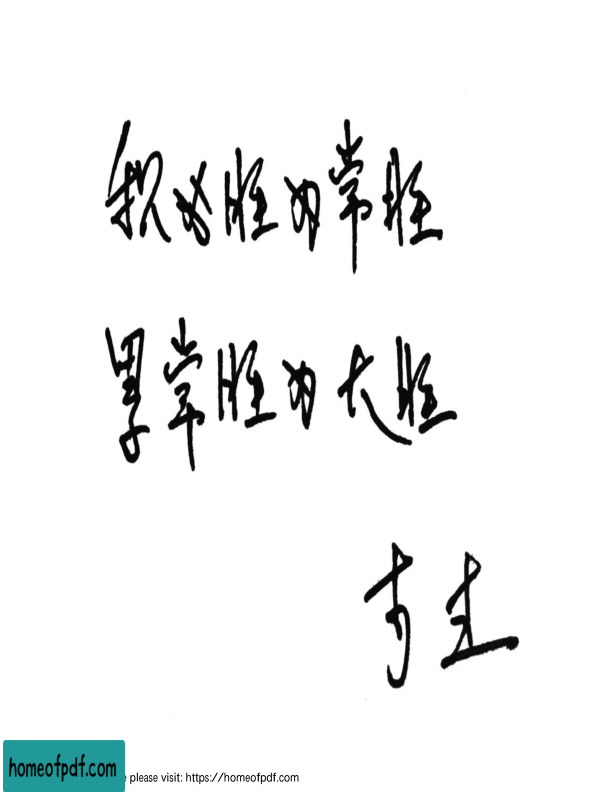 积必胜为常胜
累常胜为大胜
李主
homeofpdf.com
e please visit: https://homeofpdf.com